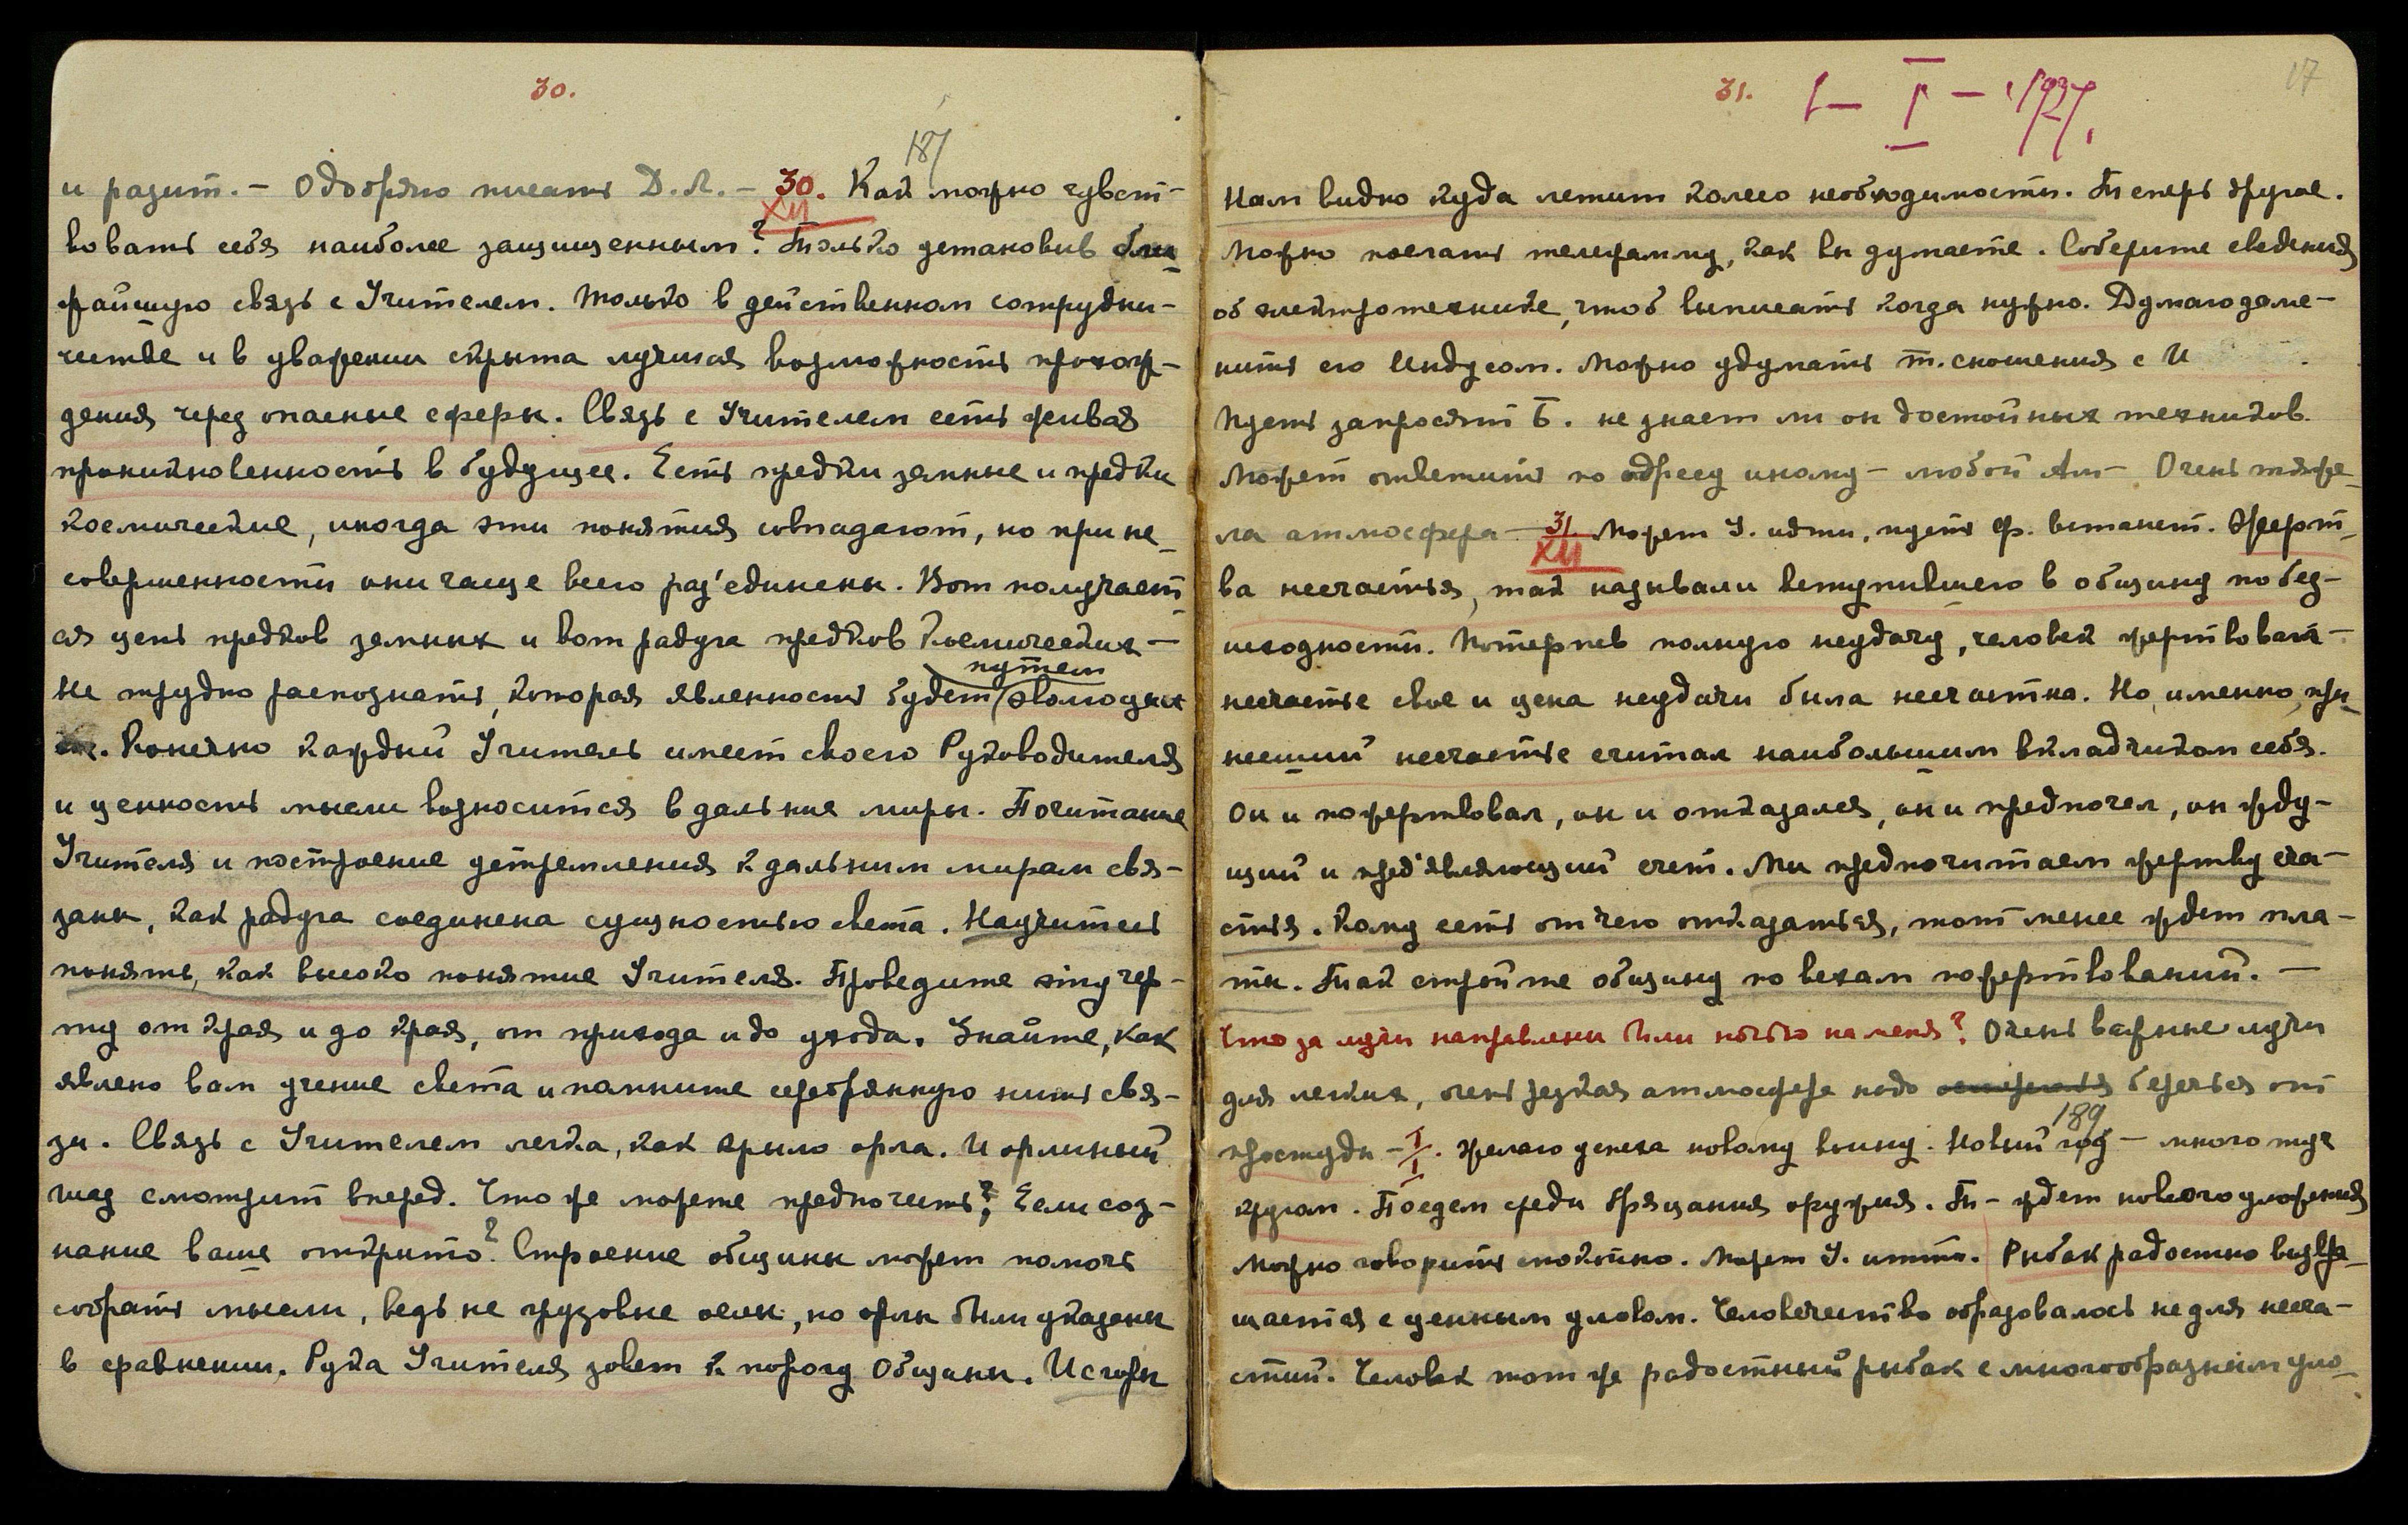 30.
187
и разит. — Одобряю писать Д.Л. — 30. Как можно чувст-
XII
вовать себя наиболее защищенным? Только установив бли-
жайшую связь с Учителем. Только в действенном сотрудни-
честве и в уважении скрыта лучшая возможность прохож-
дения чрез опасные сферы. Связь с Учителем есть живая
проникновенность в будущее. Есть предки земные и предки
космические, иногда эти понятия совпадают, но при не-
совершенности они чаще всего раз'единены. Вот получает-
ся цепь предков земных и вот радуга предков космических —
путем
Не трудно распознать, которая явленность будет эволюции
Конечно каждый Учитель имеет своего Руководителя
и ценность мысли возносится в дальние миры. Почитание
Учителя и построение устремления к дальним мирам свя-
заны, как радуга соединена сущностью света. Научитесь
понять, как высоко понятие Учителя. Проведите эту чер-
ту от края и до края, от прихода и до ухода. Знайте, как
явлено вам учение света и помните серебрянную нить свя-
зи. Связь с Учителем легка, как крыло орла. И орлиный
глаз смотрит вперед. Что же можете предпочесть? Если соз-
нание ваше открыто? Строение общины может помочь
собрать мысли, ведь не грузовые ослы, но орлы были указаны
в сравнении. Рука Учителя зовет к порогу Общины. И с горы
31. 1 — I — 1927.
17
Нам видно куда летит колесо необходимости. Теперь другое.
Можно послать телеграмму, как вы думаете. Соберите сведения
об электротехнике, чтоб выписать когда нужно. Думаю заме-
нить его Индусом. Можно удумать т. сношения с И
Пусть запросят Б. не знает ли он достойных техников.
Может ответить по адресу иному — любой Ам — Очень тяже-
ла атмосфера — 31. Может У. идти, пусть Ф. встанет. Жерт-
XII
ва несчастья, так называли вступившего в общину по без-
исходности. Потерпев полную неудачу, человек жертвовал
несчастье свое и цена неудачи была несчастна. Но, именно, при-
несший несчастье считал наибольшим вкладчиком себя.
Он и пожертвовал, он и отказался, он и предпочел, он жду-
щий и пред'являющий счет. Мы предпочитаем жертву сча-
стья. Кому есть от чего отказаться, тот менее ждет пла-
ты. Так стройте общину по вехам пожертвований. —
Что за лучи направлены были ночью на меня? Очень важные лучи
для легких, очень резкая атмосфера надо беречься от
189
простуды — I/I. Желаю успеха новому воину. Новый год — много туч
кругом. Поедем среди бряцания оружия. Т — ждет нового уложения
Можно говорить спокойно. Может У. итти. Рыбак радостно возвра-
щается с ценным уловом. Человечество образовалось не для несча-
стий. Человек тот же радостный рыбак с многообразным уло-